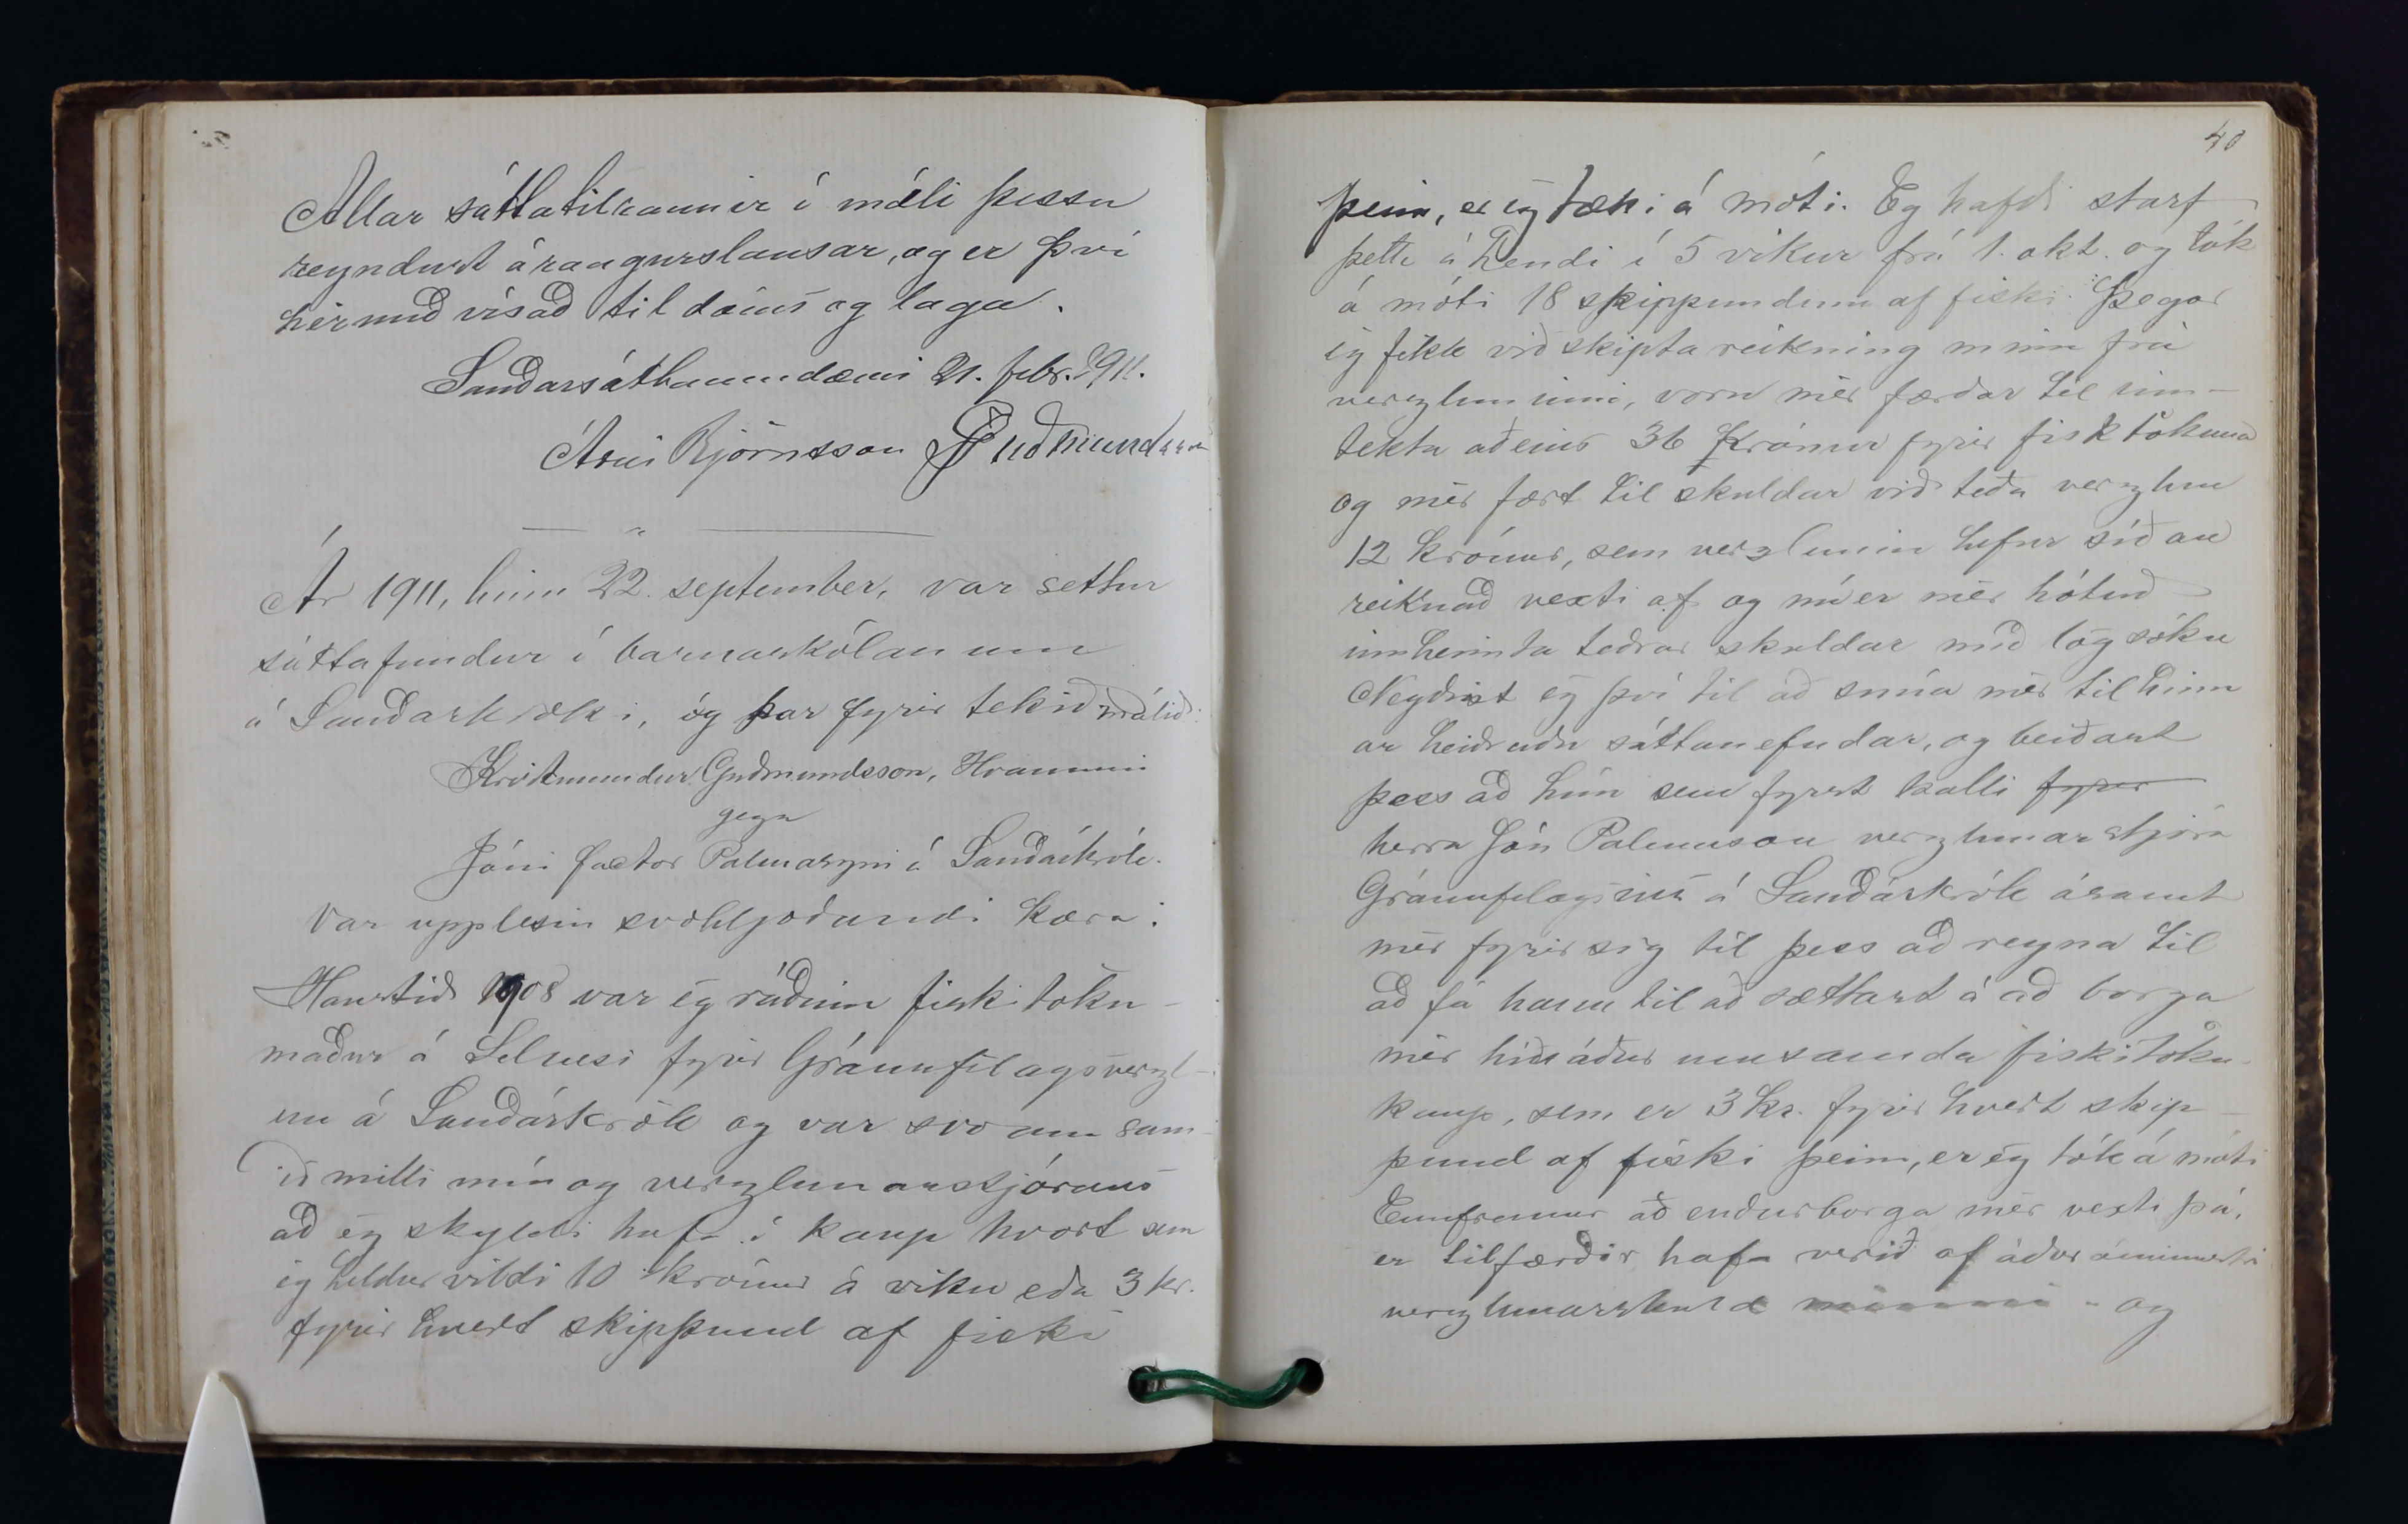 Allar sáttatilraunir í máli þessu
reyndust árangurslausar, og er því
hérmeð vísað til dóms og laga.
Sauðársáttaumdæmi 21. febr. 1911.
Árni Björnsson PGuðmundsson
Ár 1911, hinn 22. september, var settur
sáttafundur í barnaskólanum
á Sauðárkróki, og þar fyrir tekið málið:
Kristmundur Guðmundsson, Hrauni
gegn
Jóni factor Palmasyni á Sauðárkrók.
Var upplesin svohljóðandi kæra:
Haustið 1908 var ég ráðinn fiskitöku-
maður á Selnesi fyrir Gránufélagsverzl-
un á Sauðárkrók og var svo um sam-
ið milli mín og verzlunarstjórans
að ég skyldi hafa í kaup hvort sem
ég heldur vildi 10 krónur á viku eða 3 kr.
fyrir hvert skippund af fiski
40
þeim, er ég tæki á móti. Eg hafði starf
þetta á hendi í 5 vikur frá 1. okt. og tók
á móti 18 skippundum af fiski. Þegar
ég fékk viðskiptareikning minn frá
verzluninni, voru mér færðar til inn-
tekta aðeins 36 krónur fyrir fisktökuna
og mér fært til skuldar við téða verzlun
12 krónur, sem verzlunin hefur síðan
reiknað vexti af og nú er mér hótuð
innheimta téðrar skuldar með lögsókn
Neyðist ég því til að snúa mér til hinn
ar heiðruðu sáttanefndar, og beiðast
þess að hún sem fyrst kalli fyrir
herra Jón Palmason verzlunarstjóra
Gránufélagsins á Sauðárkrók ásamt
mér fyrir sig til þess að reyna til
að fá hann til að sættast á að borga
mér hið áður umsamda fiskitöku-
kaup, sem er 3 kr. fyrir hvert skip-
pund af fiski þeim, er ég tók á móti
Ennfremur að endurborga mér vexti þá,
er tilfærðir hafa verið af áður áminnstri
verzlunarskuld minni - og